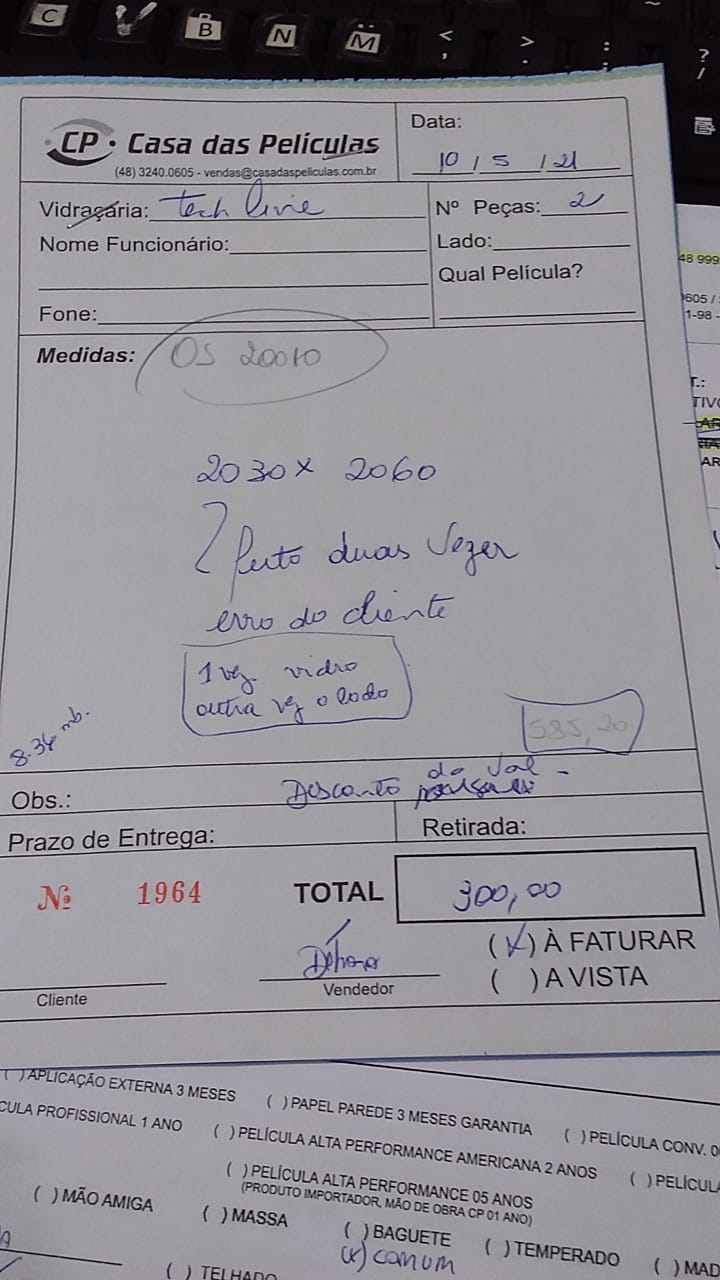 C
V
B
N
M
<
,
>
.
:
;
?
/
CP Casa das Películas
(48) 3240.0605 - vendas@casadaspeliculas.com.br
Data:
10 / 5 / 21
Vidraçaria: Tech Livie
Nº Peças: 2
Nome Funcionário:
Lado:
Qual Película?
Fone:
Medidas: OS 20010
2030 x 2060
feito duas vezes
erro do cliente
1 vez vidro
outra vez o lado
8.36 m
585,20
Obs.: Desconto do Val -
Prazo de Entrega:
Retirada:
Nº 1964
TOTAL 300,00
Débora
(X) À FATURAR
( ) A VISTA
Cliente
Vendedor
48 999
605 /
1-98 -
T.:
TIVO
AR
AR
( ) APLICAÇÃO EXTERNA 3 MESES ( ) PAPEL PAREDE 3 MESES GARANTIA ( ) PELÍCULA CONV. 0
CULA PROFISSIONAL 1 ANO ( ) PELÍCULA ALTA PERFORMANCE AMERICANA 2 ANOS ( ) PELÍCULA
( ) PELÍCULA ALTA PERFORMANCE 05 ANOS
(PRODUTO IMPORTADOR, MÃO DE OBRA CP 01 ANO)
( ) MÃO AMIGA ( ) MASSA ( ) BAGUETE ( ) TEMPERADO ( ) MAD
(x) comum
( ) TELHADO